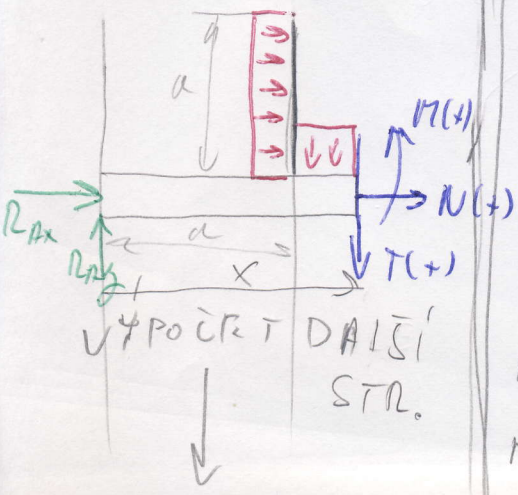 a
M(+)
N(+)
R_Ax
a
R_Ay
x
T(+)
VÝPOČET DALŠÍ
STR.